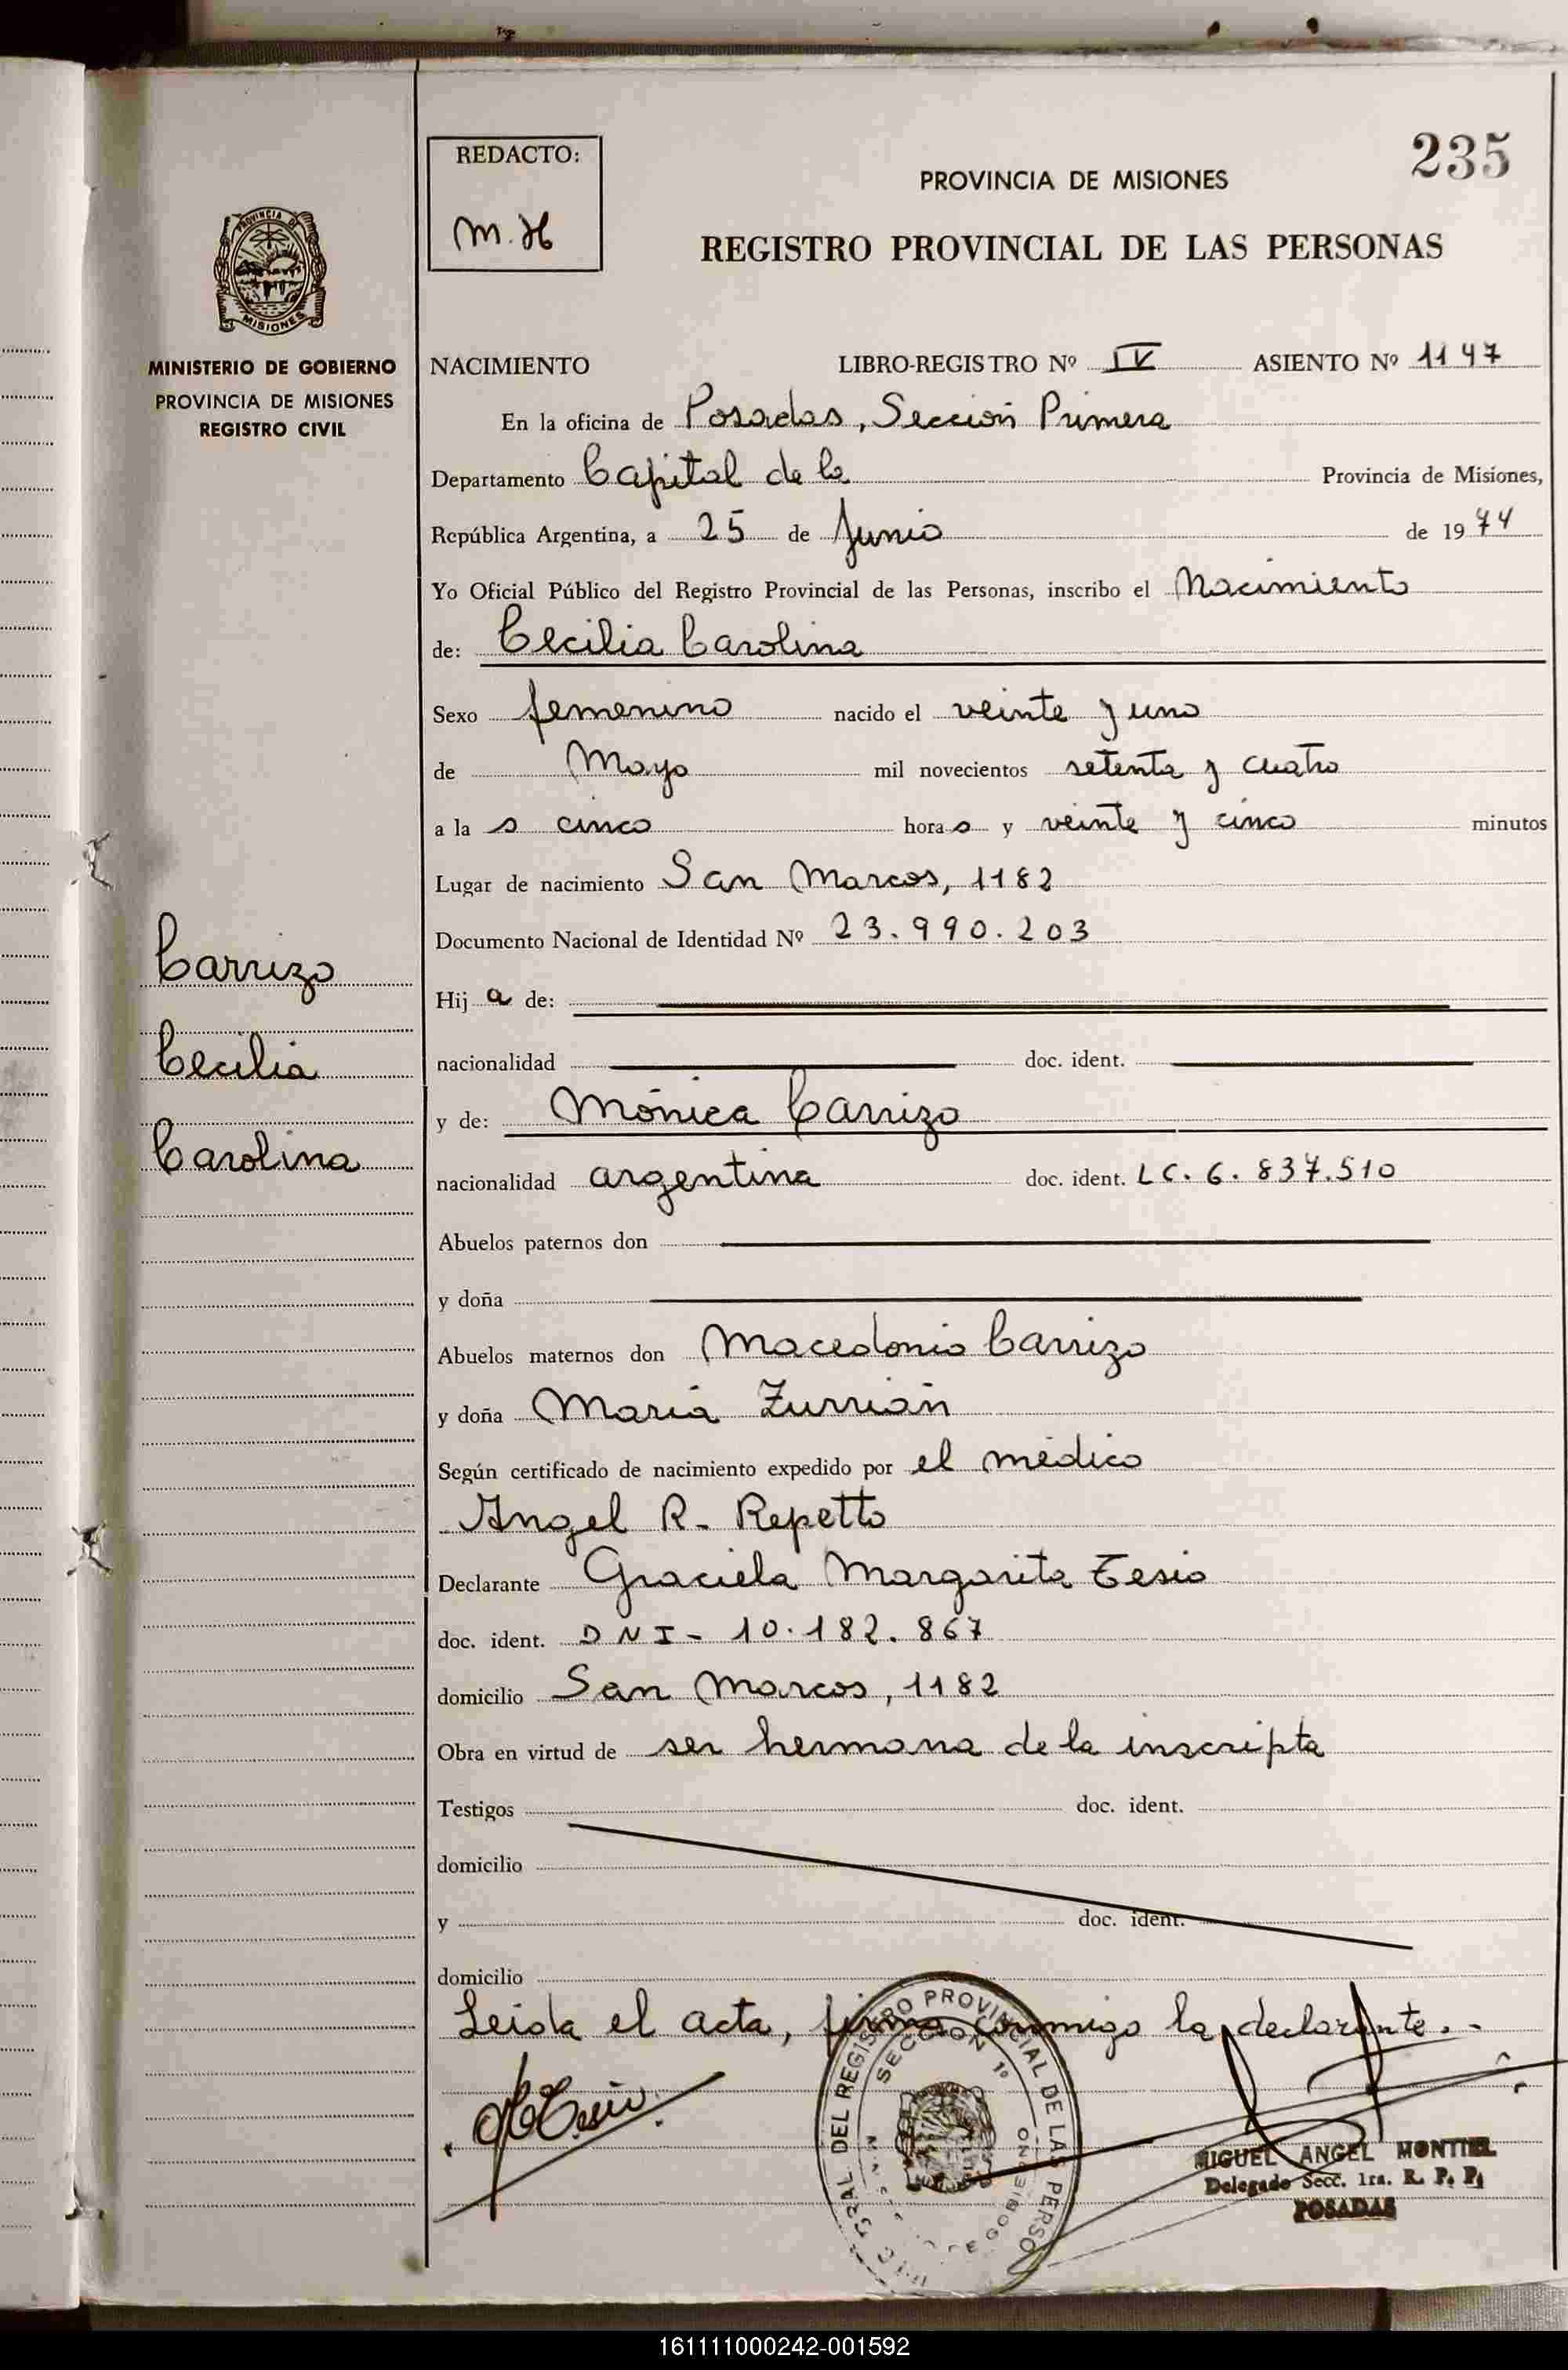 235
REDACTO:
M.H
PROVINCIA DE MISIONES
REGISTRO PROVINCIAL DE LAS PERSONAS
PROVINCIA DE
MISIONES
MINISTERIO DE GOBIERNO
PROVINCIA DE MISIONES
REGISTRO CIVIL
Carrizo
Cecilia
Carolina
NACIMIENTO LIBRO-REGISTRO Nº IV ASIENTO Nº 1147
En la oficina de Posadas, Sección Primera
Departamento Capital de la Provincia de Misiones,
República Argentina, a 25 de Junio de 1974
Yo Oficial Público del Registro Provincial de las Personas, inscribo el Nacimiento
de: Cecilia Carolina
Sexo femenino nacido el veinte y uno
de Mayo mil novecientos setenta y cuatro
a la s cinco hora s y veinte y cinco minutos
Lugar de nacimiento San Marcos, 1182
Documento Nacional de Identidad Nº 23.990.203
Hij a de:
nacionalidad doc. ident.
y de: Mónica Carrizo
nacionalidad argentina doc. ident. LC. 6.837.510
Abuelos paternos don
y doña
Abuelos maternos don Macedonio Carrizo
y doña María Zurrián
Según certificado de nacimiento expedido por el médico
Angel R. Repetto
Declarante Graciela Margarita Tesio
doc. ident. DNI - 10.182.867
domicilio San Marcos, 1182
Obra en virtud de ser hermana de la inscripta
Testigos doc. ident.
domicilio
y doc. ident.
domicilio
Leida el acta, firma conmigo la declarante.-
DEL REGISTRO PROVINCIAL DE LAS PERSO
SECCION 1º
MIGUEL ANGEL MONTIEL
Delegado Secc. 1ra. R. P. P.
POSADAS
161111000242-001592